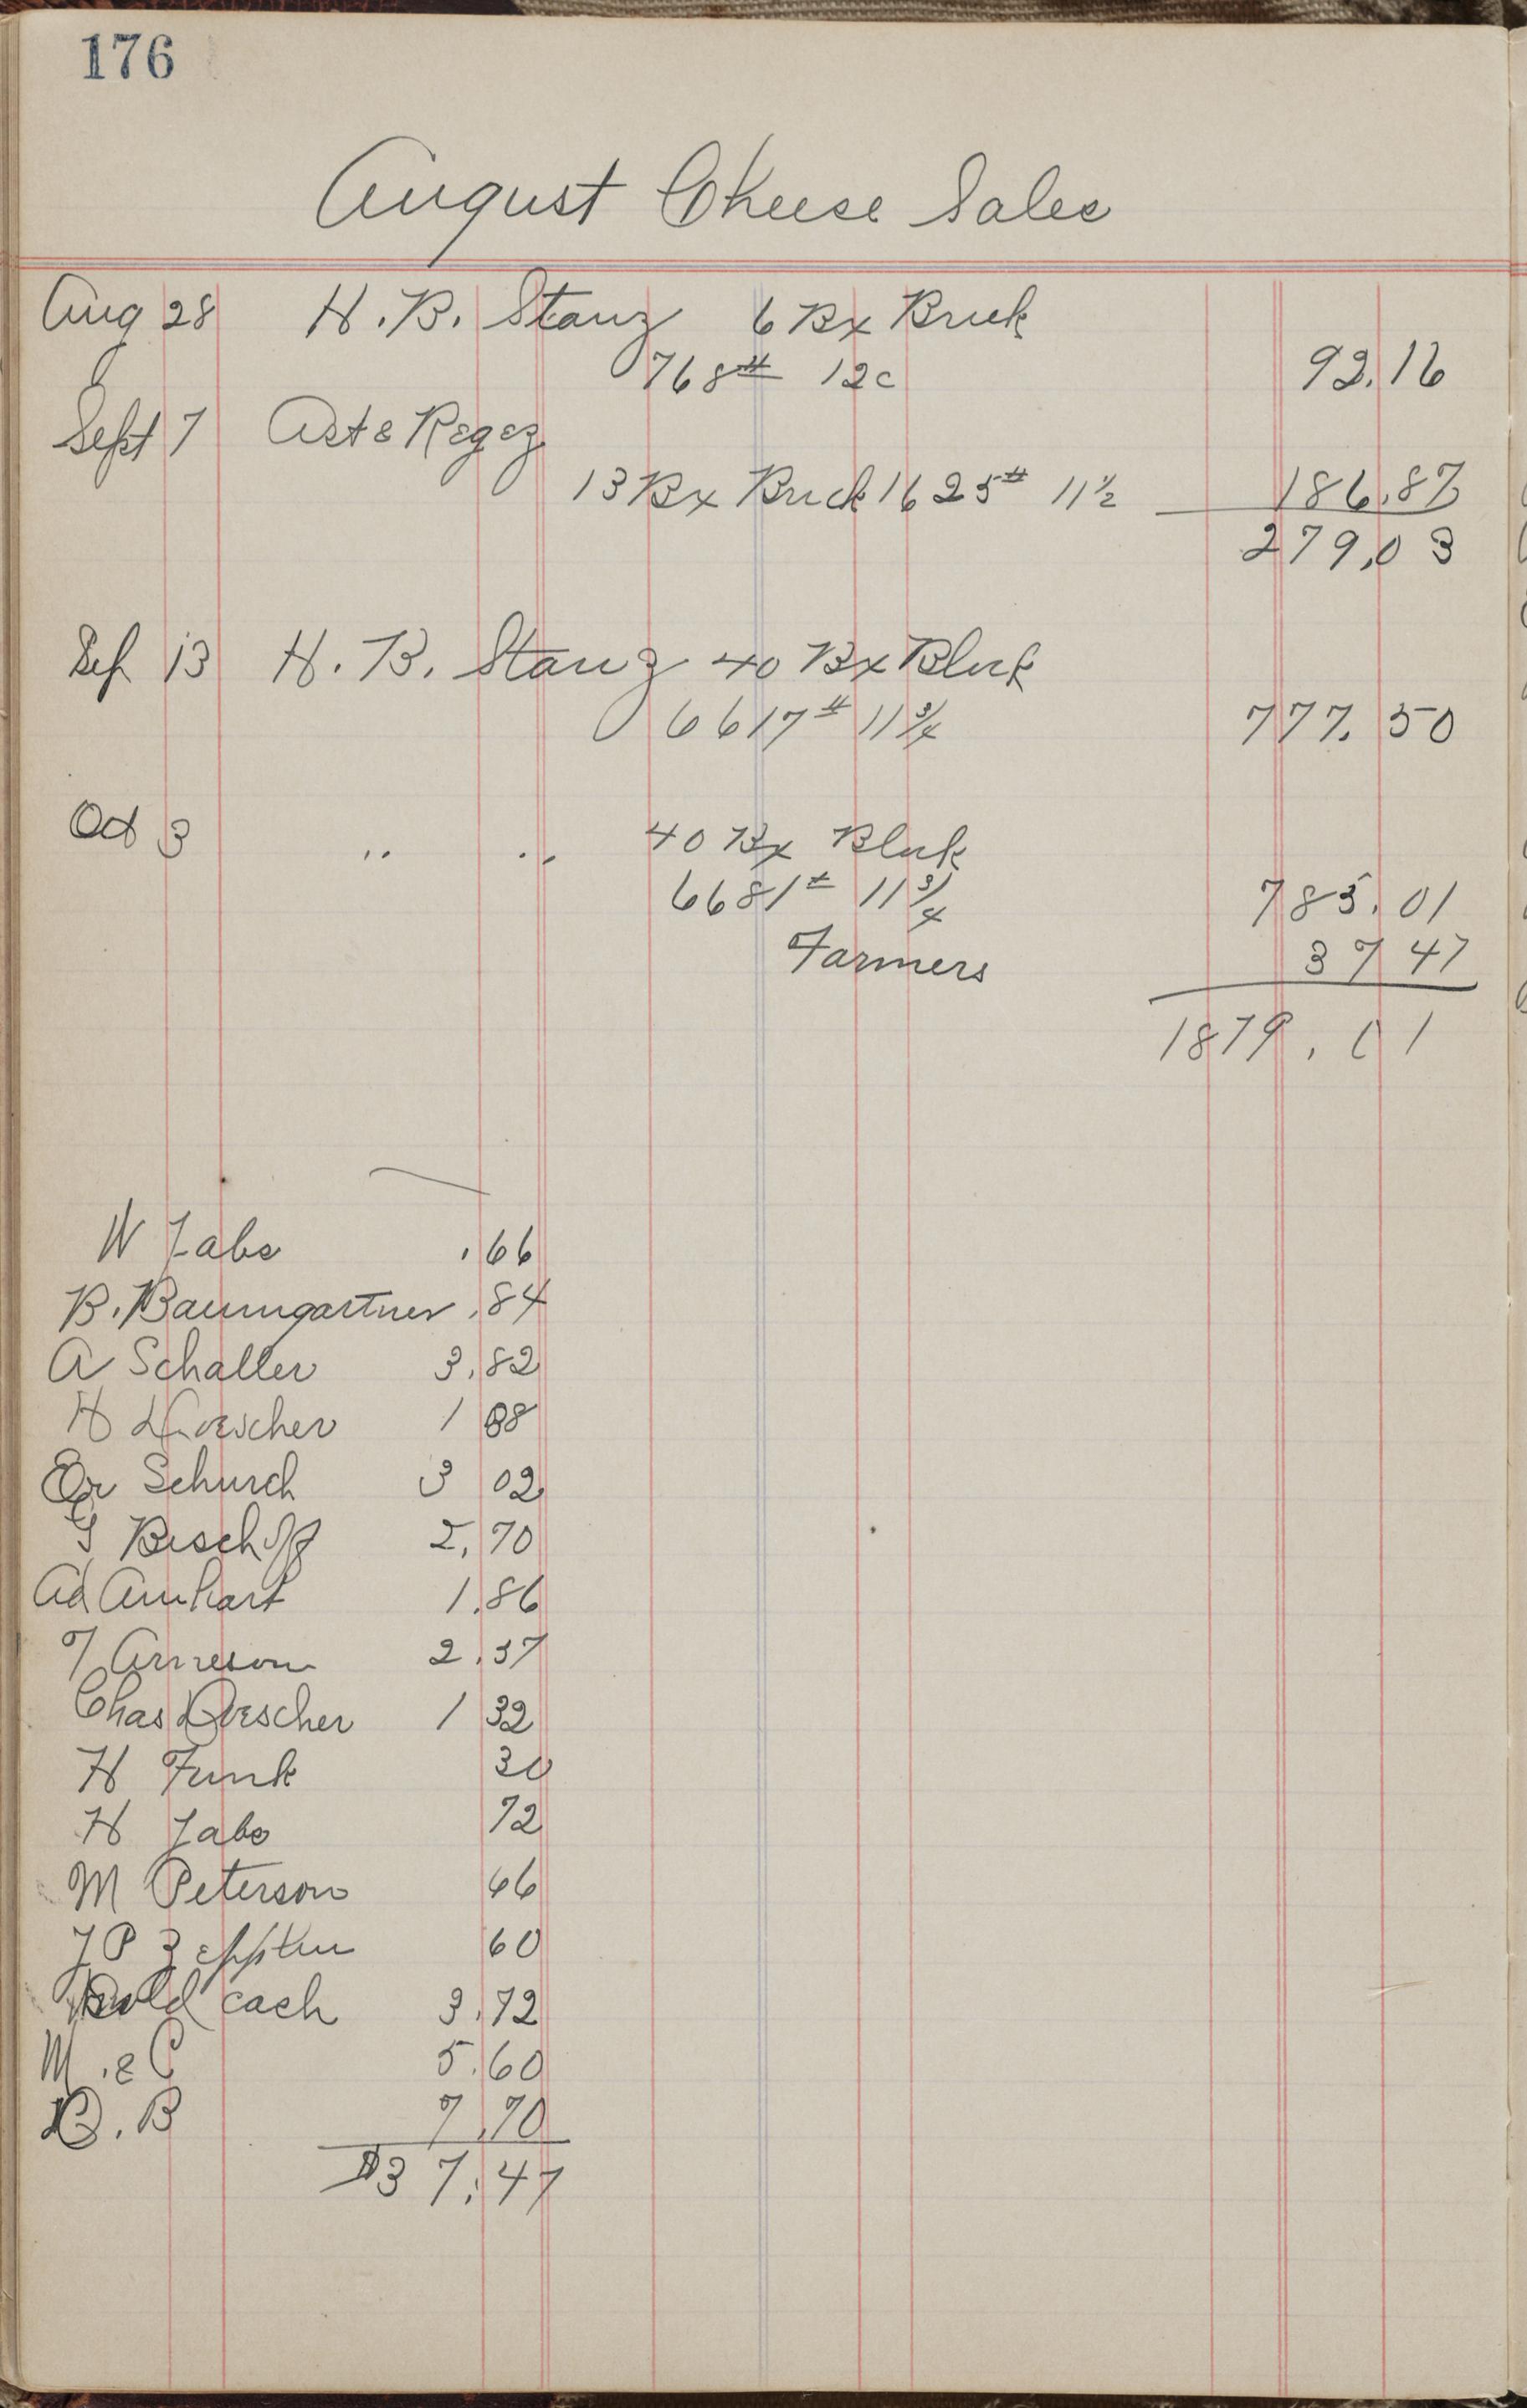 176
August Cheese Sales
Aug 28 H. B. Stanz 6 Bx Brick
768# 12c 92.16
Sept 7 Ast & Regez
13 Bx Brick 1625# 11½ 186.87
279.03
Sep 13 H. B. Stanz 40 Bx Block
6617# 11¾ 777.50
Oct 3 " " 40 Bx Block
6681# 11¾ 785.01
Farmers 37 47
1879.01
W Jabs .66
B. Baumgartner .84
A Schaller 3.82
H Doescher 1 88
Er Schurch 3 02
G Bischoff 2.70
Ad Amhart 1.86
T Arneson 2.37
Chas Doescher 1 32
H Funk 30
H Jabs 72
M Peterson 66
J P 60
Sold cash 3.72
M. & C 5.60
B. B 7.70
$37.47